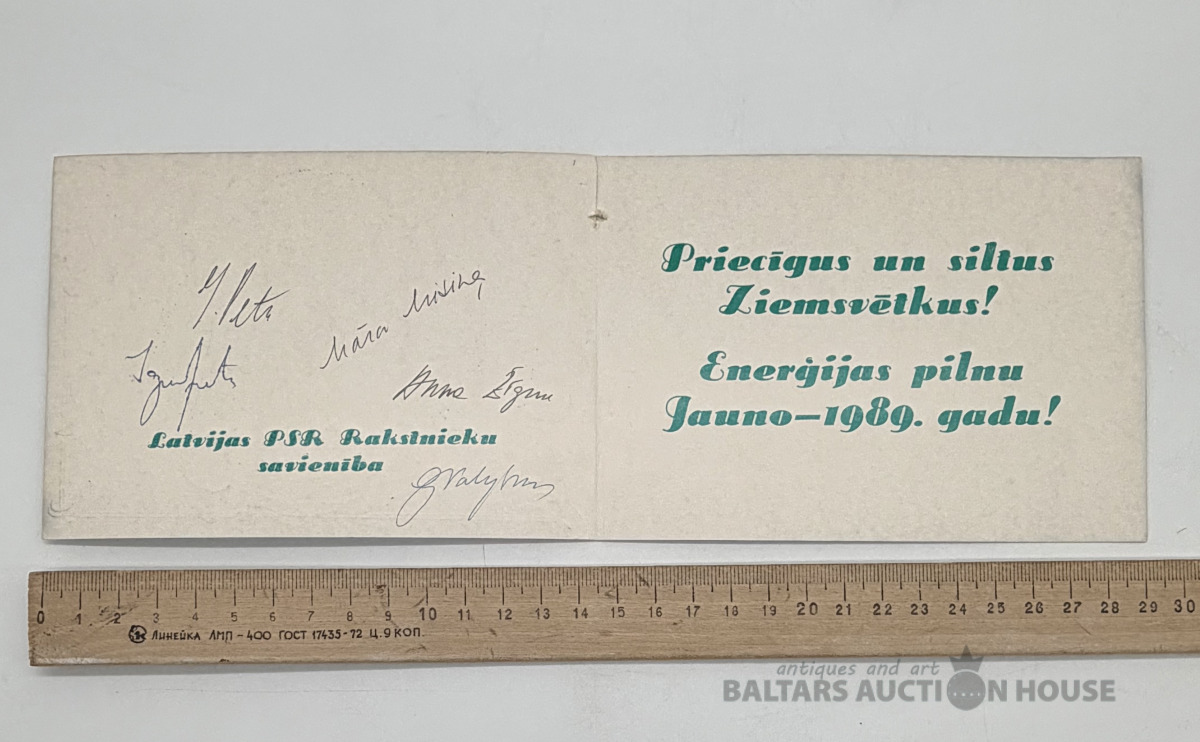 J. Peters
Māra Misiņa
Anna
Latvijas PSR Rakstnieku
savienība
Priecīgus un siltus
Ziemsvētkus!
Enerģijas pilnu
Jauno—1989. gadu!
0 1 2 3 4 5 6 7 8 9 10 11 12 13 14 15 16 17 18 19 20 21 22 23 24 25 26 27 28 29 30
ЛИНЕЙКА ЛМП-400 ГОСТ 17435-72 Ц. 9 КОП.
antiques and art
BALTARS AUCTION HOUSE